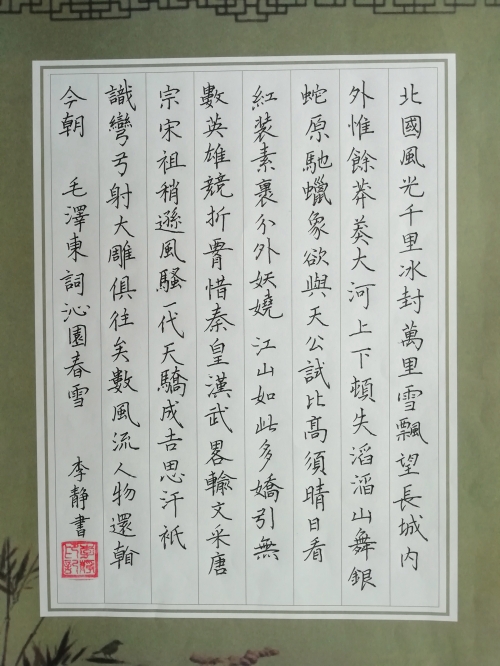 北國風光千里冰封萬里雪飄望長城内
外惟餘莽莽大河上下頓失滔滔山舞銀
蛇原馳蠟象欲與天公試比高須晴日看
紅装素裹分外妖嬈江山如此多嬌引無
數英雄競折腰惜秦皇漢武畧輸文采唐
宗宋祖稍遜風騷一代天驕成吉思汗祇
識彎弓射大雕俱往矣數風流人物還看
今朝 毛澤東詞沁園春雪 李静書